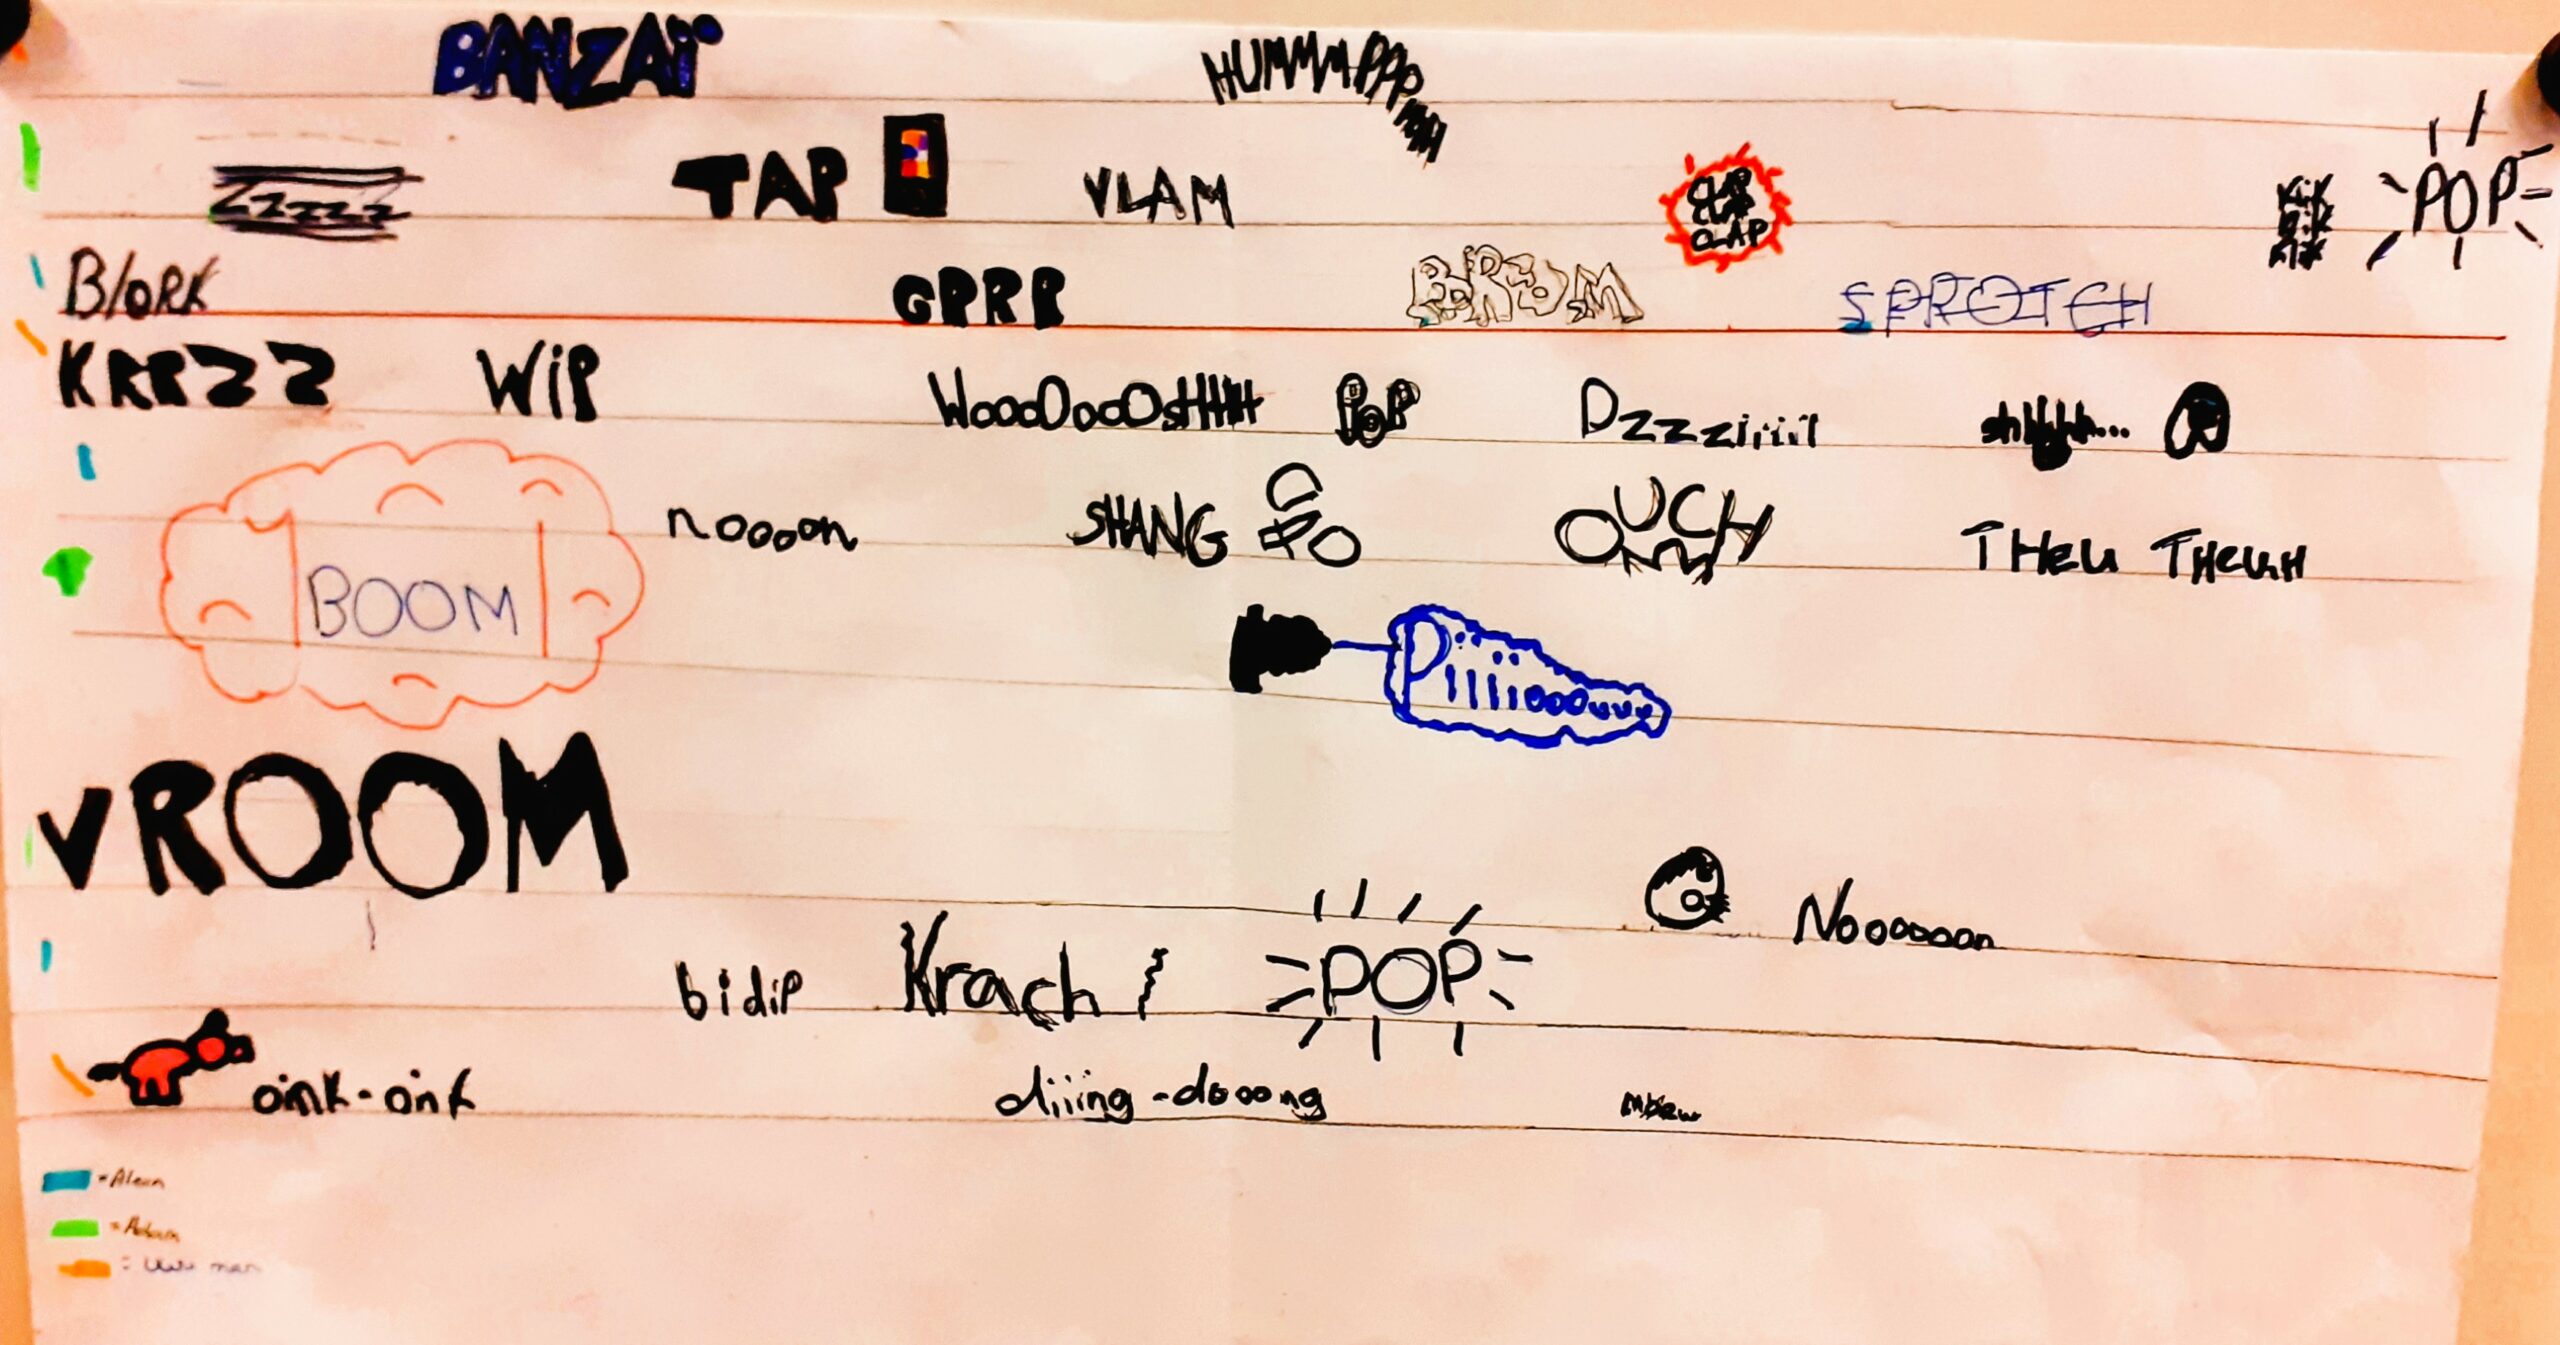 BANZAÏ HUMMMPPP
Zzzzz TAP VLAM CLAP CLAP CLAP Klik Klik Klik POP
BlORK GRRR BAROOM SPROTCH
KRRZZ WiP WoooOooOsHHHH POP Dzzziiiii shhhhh...
BOOM noooon SHANG OUCH THEU THEUH
Piiiiiooouuuu
VROOM
Nooooooon
bidiP Krach ! POP
oink-oink diiing-dooong
= Adam